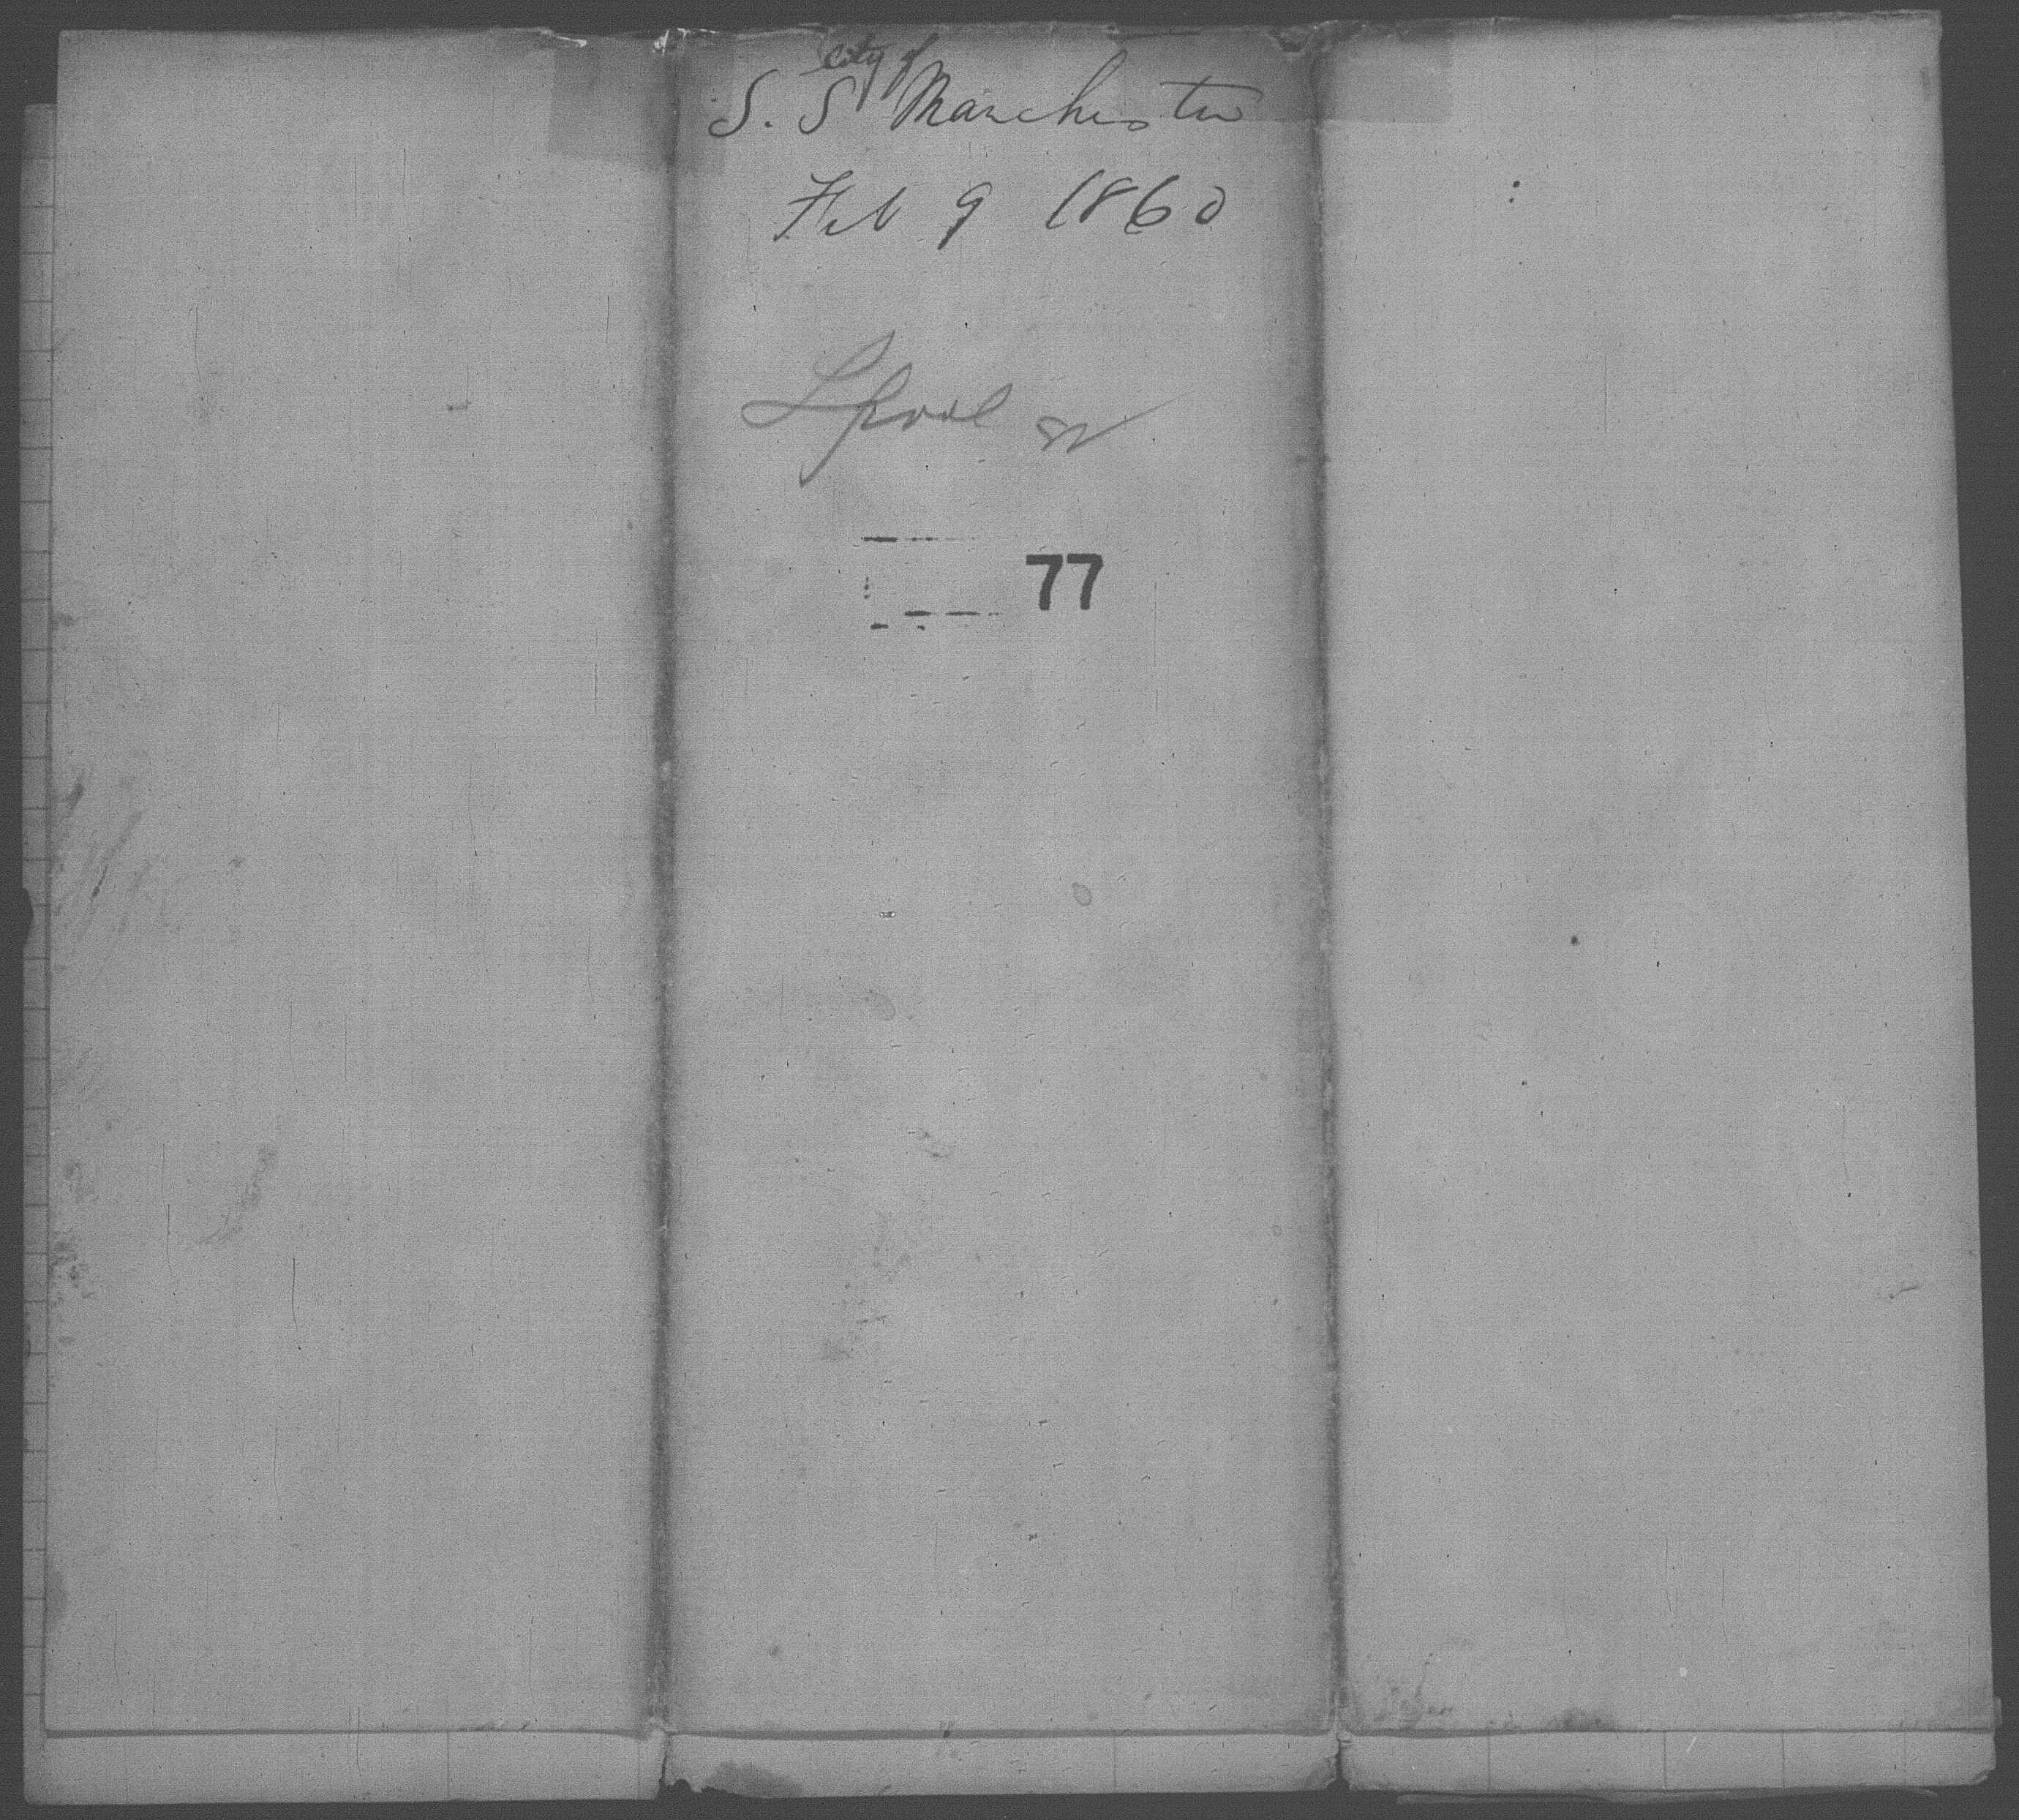 S. S City of Manchester
Feb 9 1860
Lpool
77